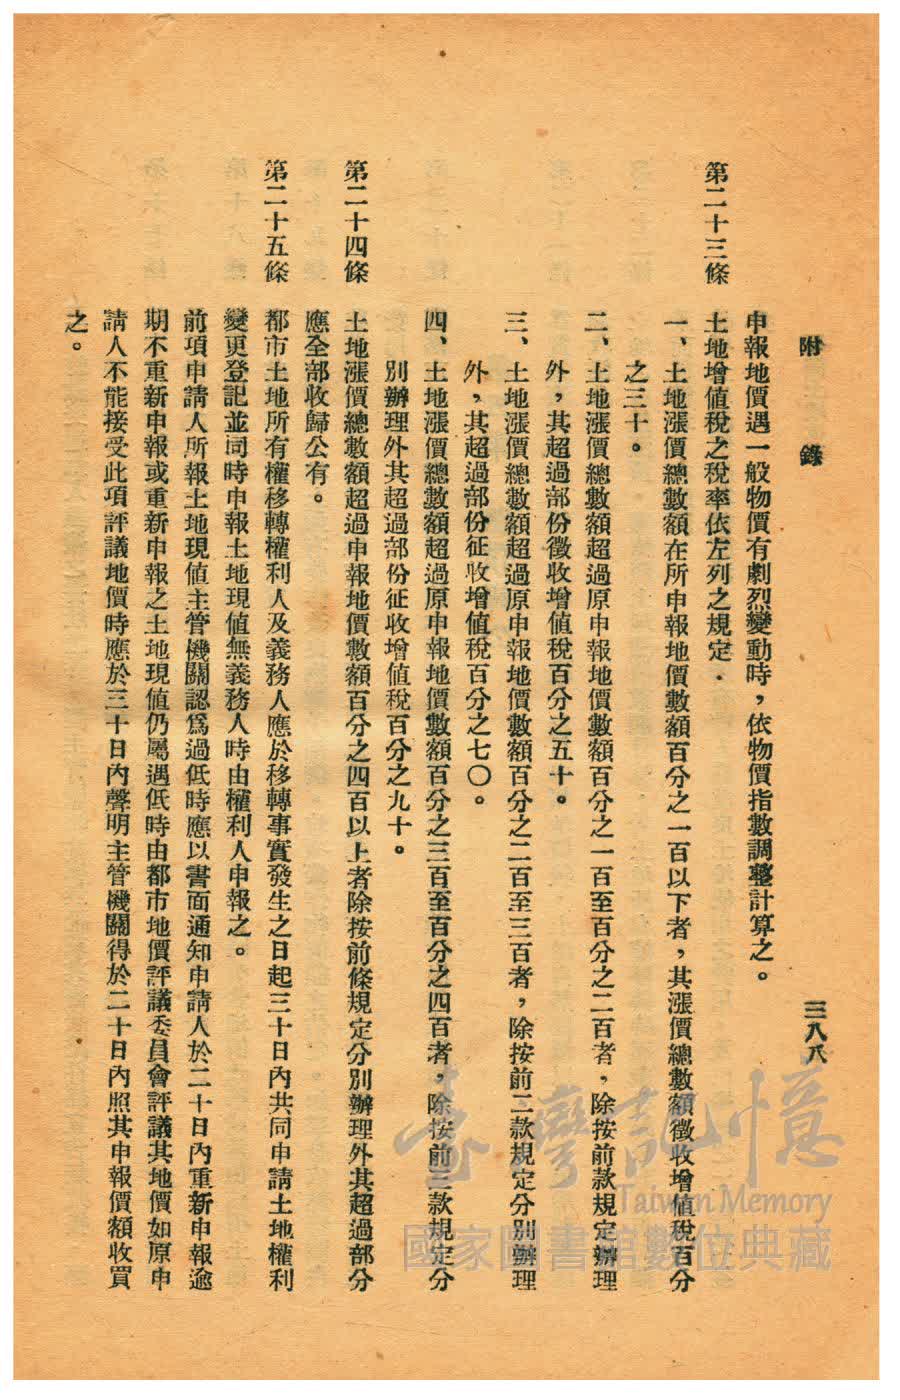 附錄
三八八
申報地價遇一般物價有劇烈變動時，依物價指數調整計算之。
第二十三條 土地增值稅之稅率依左列之規定．
一、土地漲價總數額在所申報地價數額百分之一百以下者，其漲價總數額徵收增值稅百分
之三十。
二、土地漲價總數額超過原申報地價數額百分之一百至百分之二百者，除按前款規定辦理
外，其超過部份徵收增值稅百分之五十。
三、土地漲價總數額超過原申報地價數額百分之二百至三百者，除按前二款規定分別辦理
外，其超過部份征收增值稅百分之七〇。
四、土地漲價總數額超過原申報地價數額百分之三百至百分之四百者，除按前三款規定分
別辦理外其超過部份征收增值稅百分之九十。
第二十四條 土地漲價總數額超過申報地價數額百分之四百以上者除按前條規定分別辦理外其超過部分
應全部收歸公有。
第二十五條 都市土地所有權移轉權利人及義務人應於移轉事實發生之日起三十日內共同申請土地權利
變更登記並同時申報土地現值無義務人時由權利人申報之。
前項申請人所報土地現值主管機關認爲過低時應以書面通知申請人於二十日內重新申報逾
期不重新申報或重新申報之土地現值仍屬過低時由都市地價評議委員會評議其地價如原申
請人不能接受此項評議地價時應於三十日內聲明主管機關得於二十日內照其申報價額收買
之。
臺灣記憶
Taiwan Memory
國家圖書館數位典藏